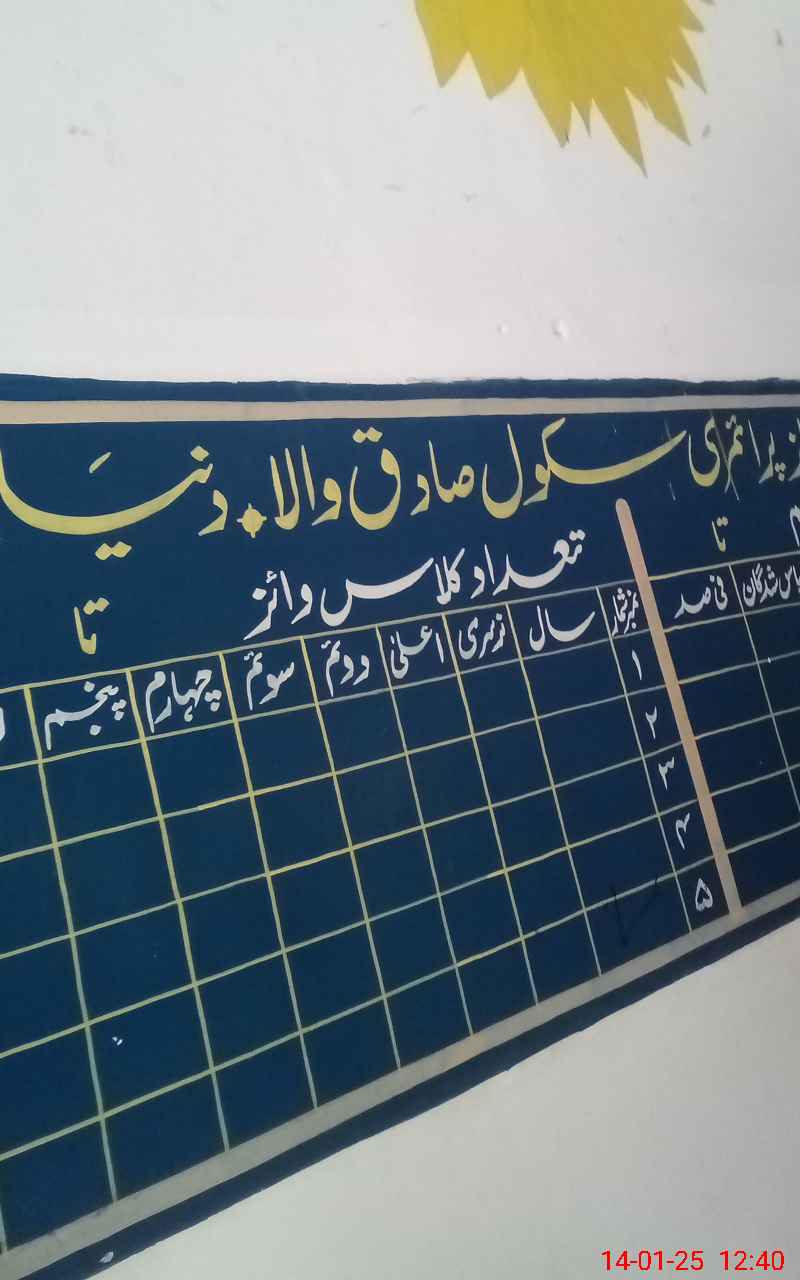 پرائمری سکول صادق والا دنیا
تا
تعداد کلاس وائز
تا
شدگان
فی صد
نمبر شمار
سال
نرسری
اعلیٰ
دوئم
سوئم
چہارم
پنجم
۱
۲
۳
۴
۵
14-01-25 12:40